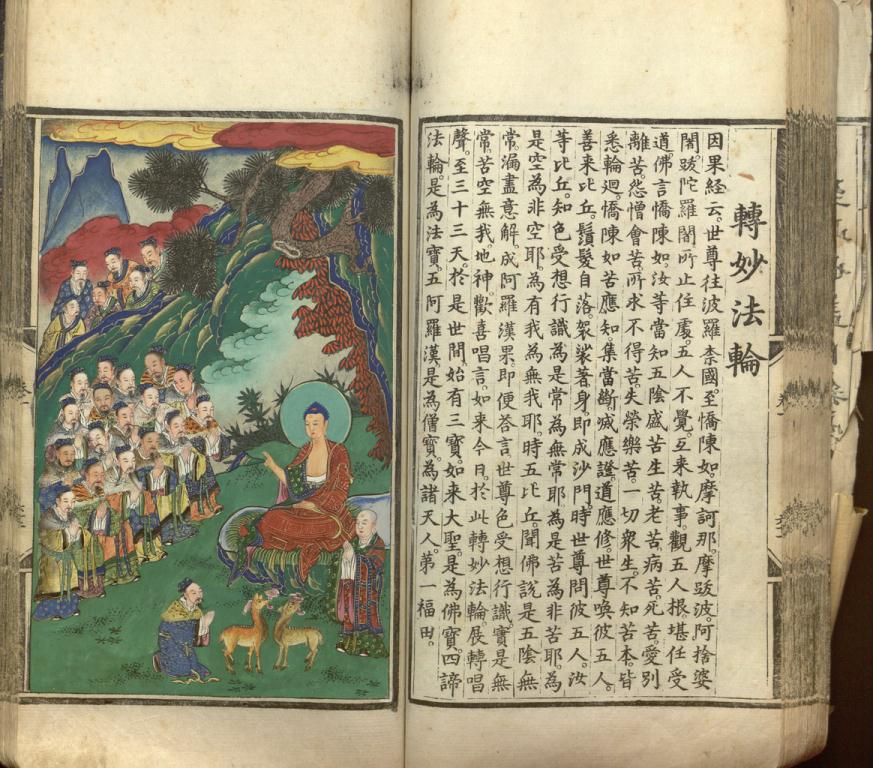 轉妙法輪
因果経云。世尊往波羅柰國。至憍陳如。摩訶那。摩跋波。阿捨婆
闍。跋陀羅闍。所止住處。五人不覺。互来執事。觀五人根。堪任受
道。佛言憍陳如。汝等當知五陰盛苦。生苦。老苦。病苦。死苦。愛別
離苦。怨憎會苦。所求不得苦。失榮樂苦。一切衆生。不知苦本。皆
悉輪廻。憍陳如苦應知。集當斷。滅應證。道應修。世尊喚彼五人。
善来比丘。鬚髮自落。袈裟著身。即成沙門。時世尊問彼五人。汝
等比丘。知色受想行識。為是常為無常耶。為是苦為非苦耶。為
是空為非空耶。為有我為無我耶。時五比丘。聞佛說是五陰無
常。漏盡意解。成阿羅漢果。即便答言。世尊色受想行識。實是無
常苦空無我。地神歡喜唱言。如来今日。於此轉妙法輪。展轉唱
聲。至三十三天。於是世間。始有三寶。如来大聖。是為佛寶。四諦
法輪。是為法寶。五阿羅漢。是為僧寶。為諸天人。第一福田。